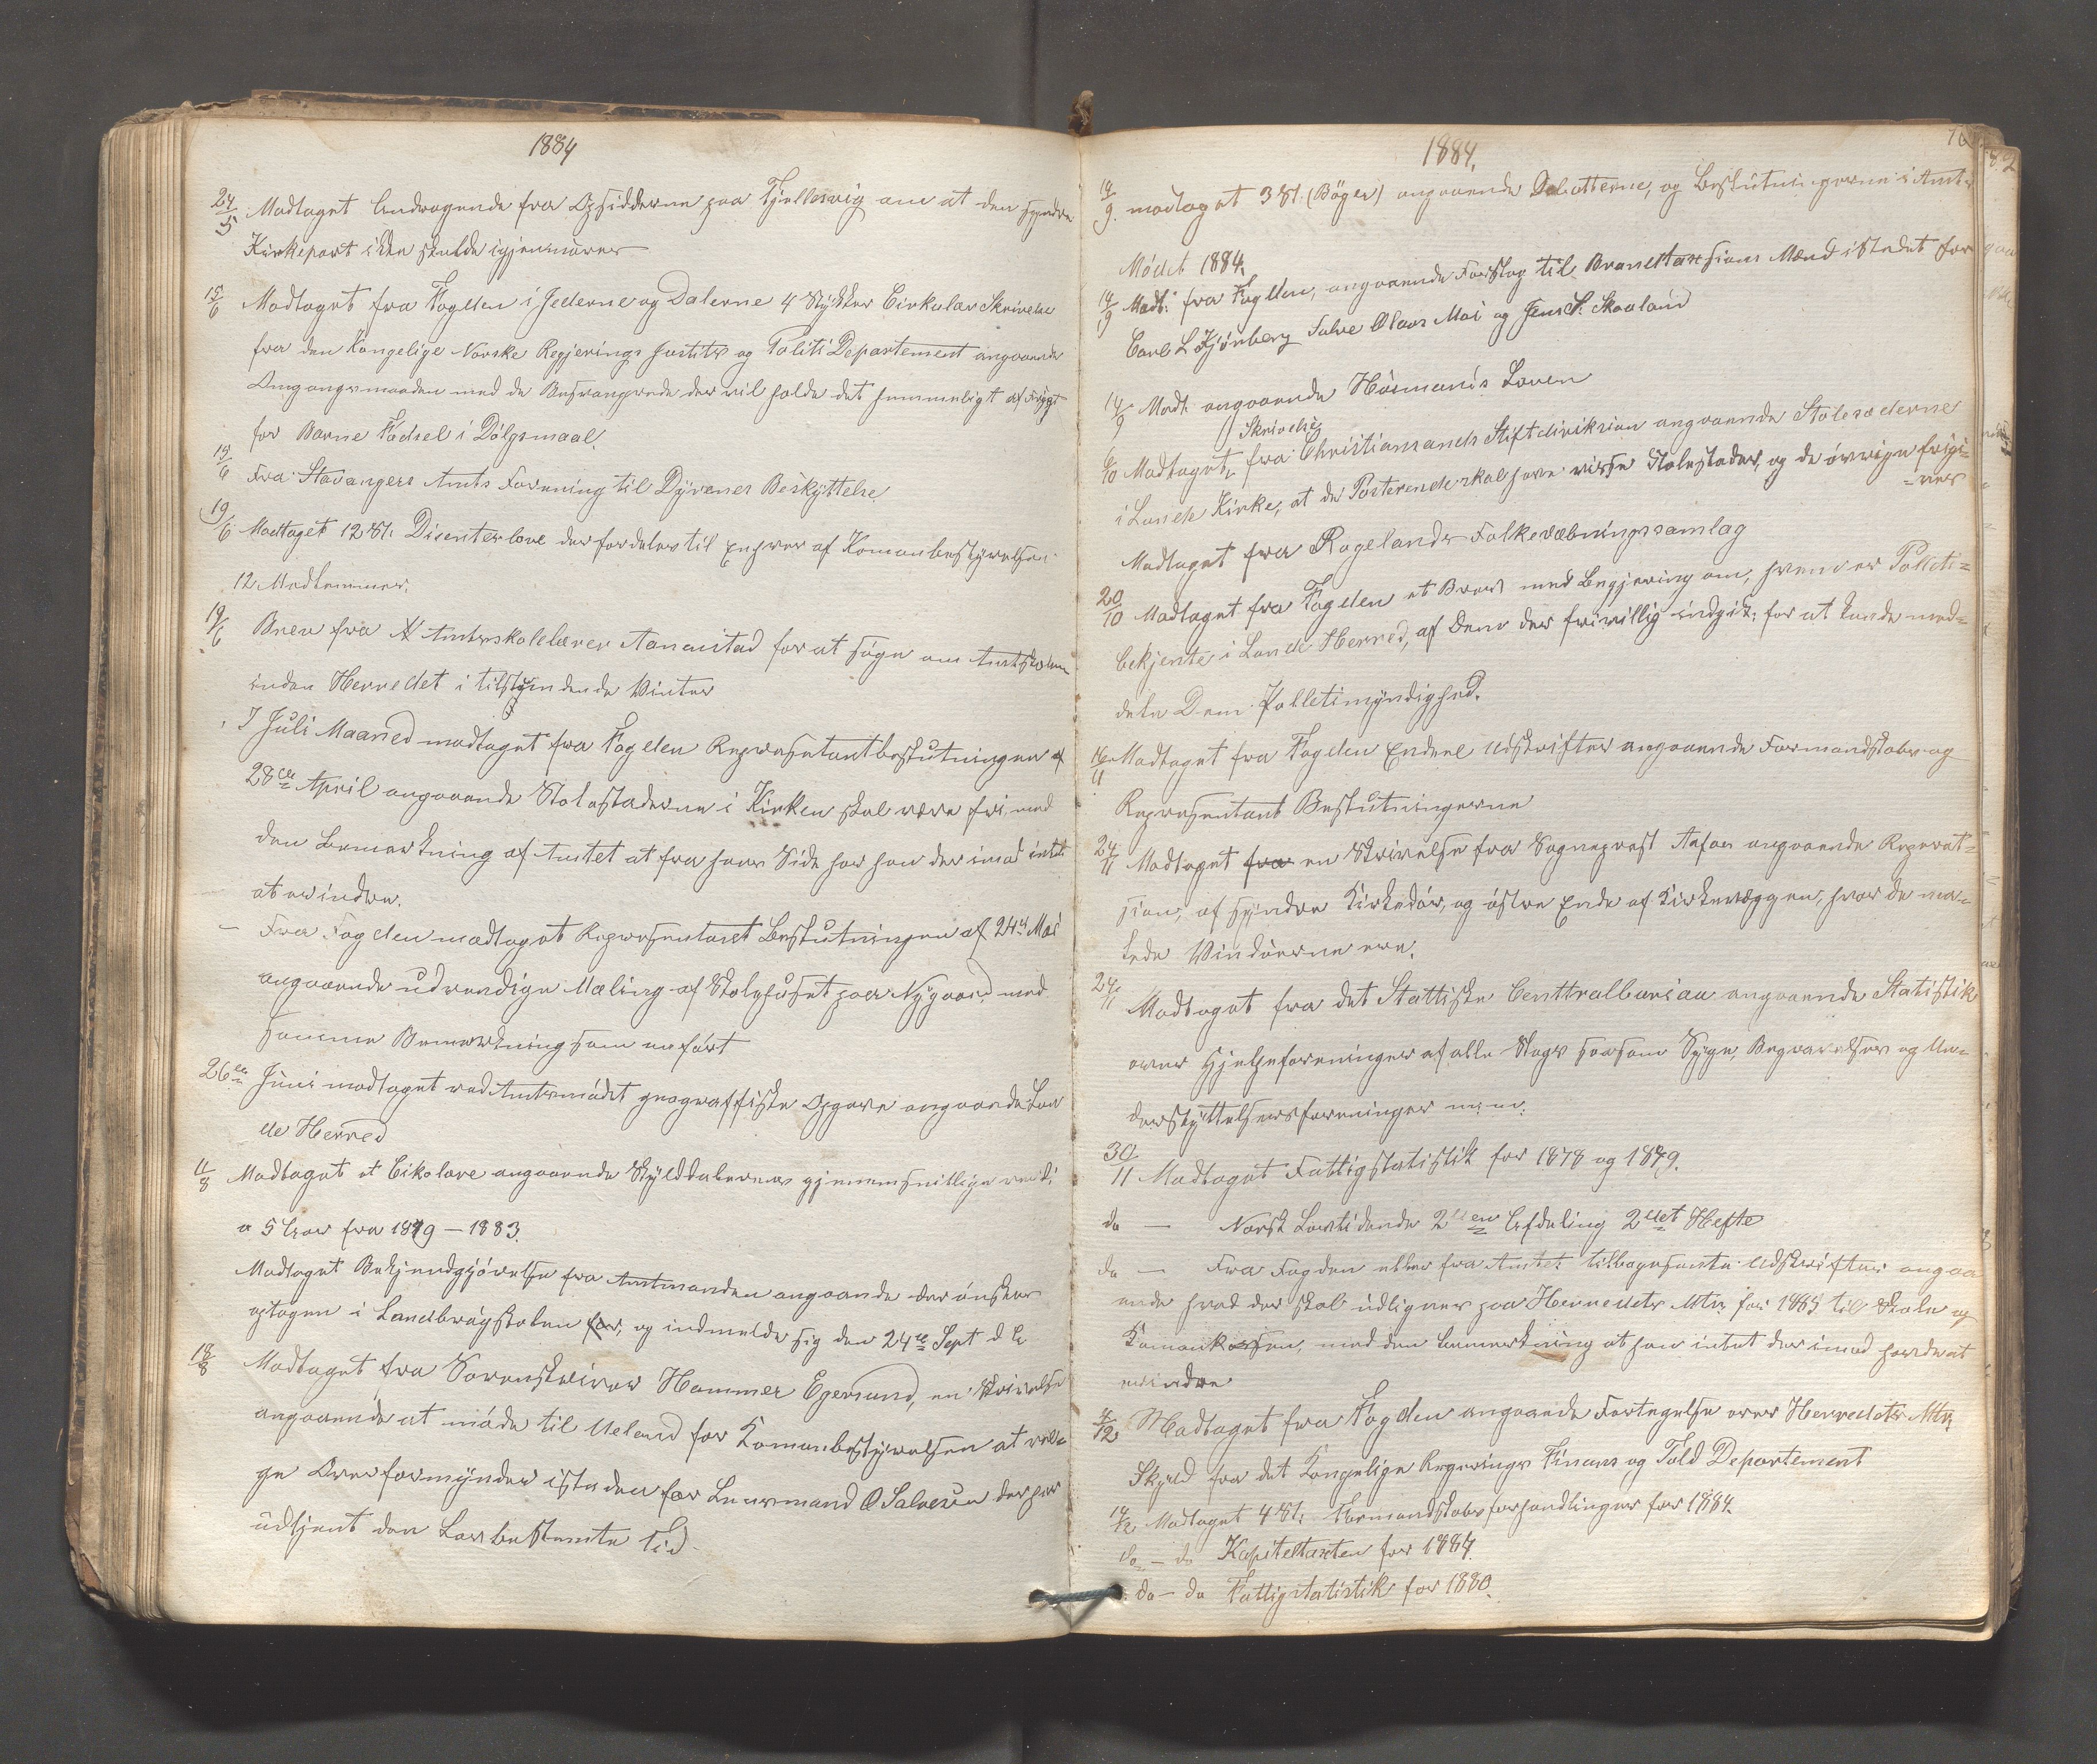 1884
24/5 Modtaget Andragende fra Opsidderne paa Fjellesvig om at den søndre
Kirkeport ikke skulde igjenmures
15/6 Modtaget fra Fogden i Jederne og Dalerne 4 Stykker Cirkulær Skrivelse
fra den Kongelige Norske Regjerings Justits og Politi Departement angaaende
Omgangsmaaden med de Besvangrede der vil holde det hemmeligt af Frygt
for Barne Fødsel i Dölgsmaal.
19/6 Fra Stavangers Amts Forening til Dyrenes Beskyttelse
19/6 Modtaget 12 St. Disenterlove der fordeles til Enhver af Komunbestyrelsens
12 Medlemmer.
19/6 Brev fra Amtsskolelærer Aanestad for at søge om Amtskolen
inden Herredet i tilstundende Vinter
I Juli Maaned modtaget fra Fogden Representantbeslutningen af
28de April angaaende Stolestaderne i Kirken skal være fri, med
den Bemærkning af Amtet at fra hans Side har han der imod intet
at erindre.
– Fra Fogden modtaget Representant Beslutningen af 24de Mai
angaaende udvendige Maling af Skolehuset paa Nygaard, med
samme Bemærkning som anført
26de Juni modtaget ved Amtsmødet geograffiske Opgave angaaende Lun
de Herred
11/8 Modtaget et Cikulære angaaende Skylddalerens gjennemsnitlige værdi
a 5 Aar fra 1879 – 1883.
Modtaget Bekjendgjørelse fra Amtmanden angaande der ønsker
optagen i Landbrugskolen for, og indmelde sig den 24de Sept d A
18/8 Modtaget fra Sorenskriver Hammer Egersund, en Skrivelse
angaaende at møde til Ueland for Komunbestyrelsen at vel-
ge Overformynder isteden for Lensmand O Salvesen der har
udtjent den Lovbestemte Tid.
1884.
14/9 modtaget 3 St. (Böger) angaaende Debatterne, og Beslutningerne i Amts
Mødet 1884.
14/9 Modt. fra Fogden, angaaende Forslag til Brandtaxsions Mænd istedet for
Carl L Kjörberg Salve Olsens Moi og Jens S. Skaaland
14/9 Modt. angaaende Husmands Loven
Skrivelse
6/10 Modtaget fra Christiansands Stiftdirektion angaaende Stolesæderne
i Lunde Kirke, at de Posterende skal have visse Stolestader, og de øvrige frigi-
=ves
Modtaget fra Rogelands Folkevæbningssamlag
20/10 Modtaget fra Fogden et Brev med Begjering om, hvem er Politi=
bekjente i Lunde Herred, af Dem der frivillig indgik, for at kunde med=
dele Dem Polletimyndighed.
16/11 Modtaget fra Fogden Endeel Udskrifter angaaende Formandskabs og
Representant Beslutningerne
24/11 Modtaget fra en Skrivelse fra Sogneprest angaaende Reperat=
sion, af søndre Kirkedör, og östre Ende af Kirkevæggen, hvor de ma-
lede Vinduerne ere.
24/11 Modtaget fra det Stattiske Centtralburiau angaaende Statistik
over Hjelpeforeninger af alle Slags saasom Syge, Begravelses og Un-
derstyttelsesforeninger m.m.
30/11 Modtaget Fattigstatistik for 1878 og 1879.
do – Norsk Lovtidende 2den Afdeling 2det Hefte
do – Fra Fogden eller fra Amtet tilbagesente Udskrifter angaa
ende hvad der skal udlignes paa Herredets Mtr. for 1885 til Skole og
Komunkassen, med den Bemerkning at han intet der imod havde at
erindre
4/12 Modtaget fra Fogden angaaende Fortegelse over Herredets Mtr.
Skyld fra det Kongelige Regerings Finans og Told Departement
14/12 Modtaget 4 St. Formandskabsforhandlinger for 1884.
do – do Kapiteltaxten for 1884.
do – do Fattigstatistik for 1880.